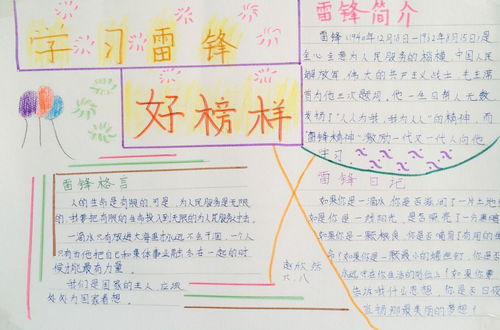 学习雷锋
好榜样
雷锋简介
雷锋(1940年12月18日-1962年8月15日)是
全心全意为人民服务的楷模,中国人民
解放军,伟大的共产主义战士,毛主席
曾为他三次题词,他一生日帮人无数
发扬了"人人为我,我为人人"的精神,而
"雷锋精神"激励一代又一代人向他
学习
雷锋格言
人的生命是有限的,可是,为人民服务是无限
的,我要把有限的生命投入到无限的为人民服务中去。
一滴水只有放进大海里才永远不会干涸,一个人
只有当他把自己和集体事业融合在一起的时
候才能最有力量。
我们是国家的主人,应该
处处为国家着想。
雷锋日记
如果你是一滴水,你是否滋润了一片土地
如果你是一线阳光,你是否照亮了一分黑暗
如果你是一颗粮食,你是否哺育了有用的生
命!如果你是一颗最小的螺丝钉,你是否
永远守在你生活的岗位上!如果你要
告诉我什么思想,你是否日夜
宣扬那最美丽的梦想?
六.八